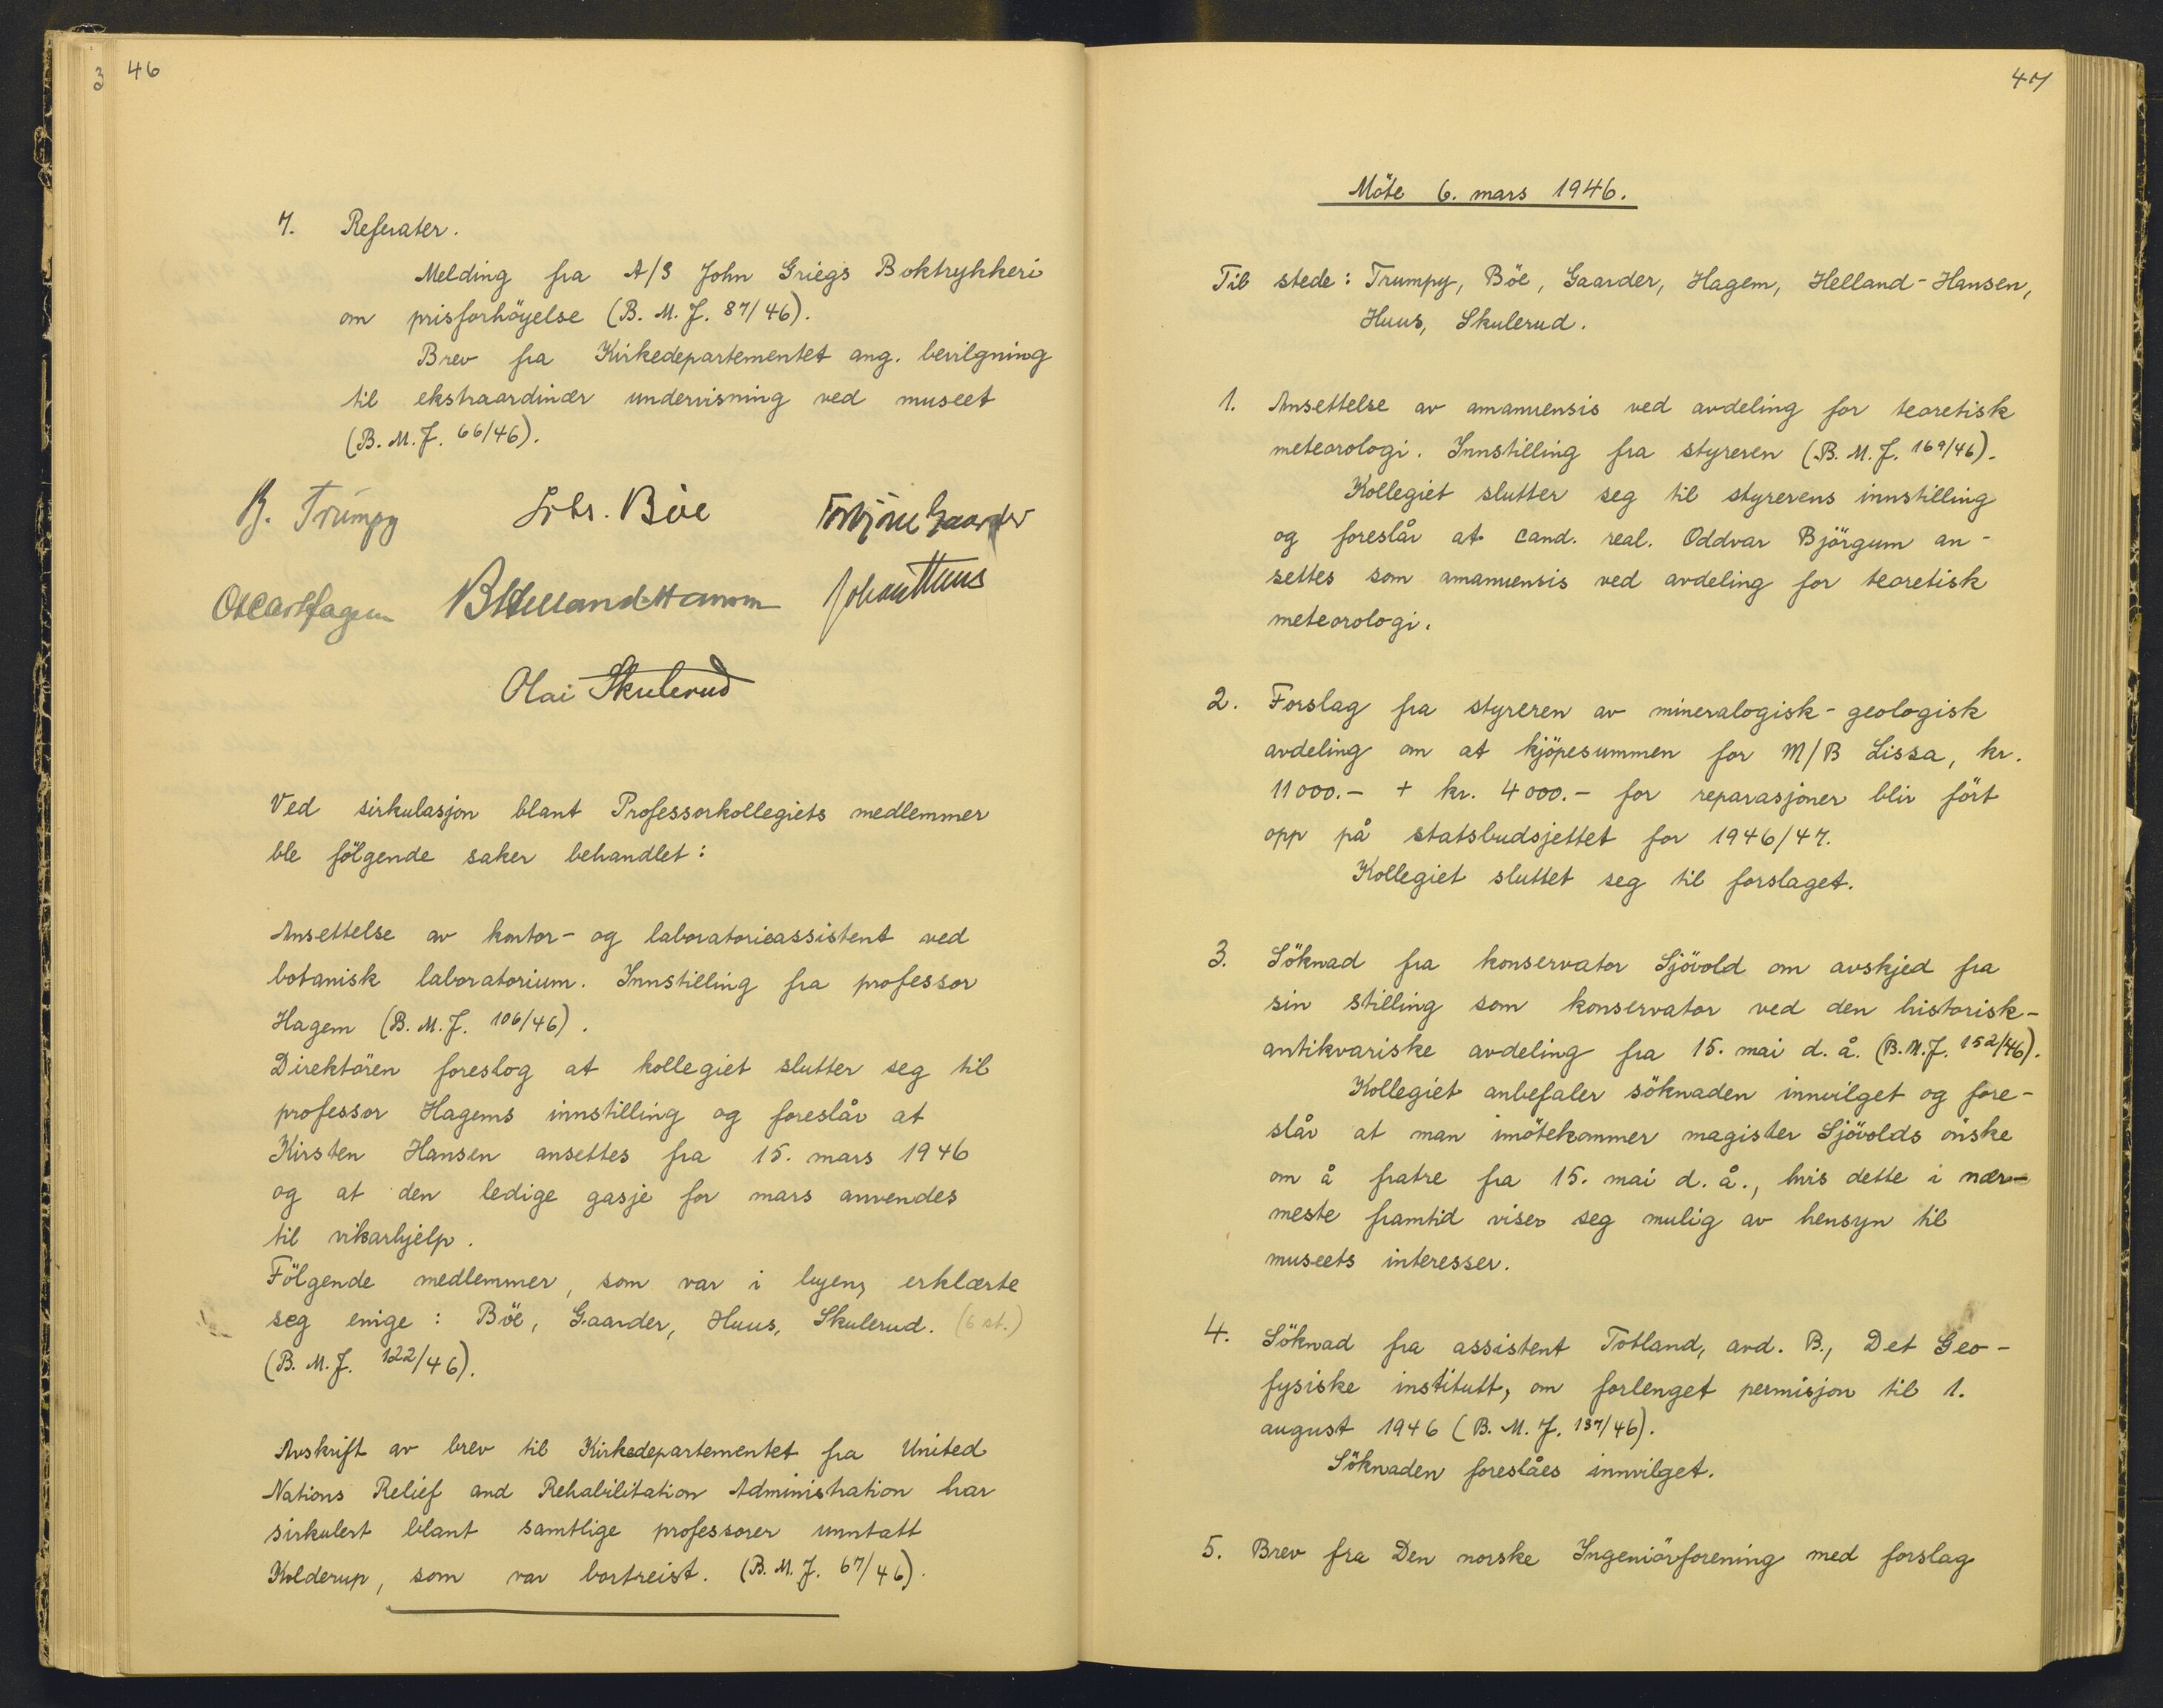 46
7. Referater.
Melding fra A/S John Griegs Boktrykkeri
om prisforhöyelse (B. M. J. 87/46).
Brev fra Kirkedepartementet ang. bevilgning
til ekstraordinær undervisning ved museet
(B. M. J. 66/46).
B. Trumpy Johs. Böe Torbjörn Gaarder
Oscar Hagem B Helland-Hansen Johan Huus
Olai Skulerud
Ved sirkulasjon blant Professorkollegiets medlemmer
ble fölgende saker behandlet:
Ansettelse av kontor- og laboratorieassistent ved
botanisk laboratorium. Innstilling fra professor
Hagem (B. M. J. 106/46).
Direktören foreslog at kollegiet slutter seg til
professor Hagems innstilling og foreslår at
Kirsten Hansen ansettes fra 15. mars 1946
og at den ledige gasje for mars anvendes
til vikarhjelp.
Fölgende medlemmer, som var i byen, erklærte
seg enige: Böe, Gaarder, Huus, Skulerud. (6 st.)
(B. M. J. 122/46).
Avskrift av brev til Kirkedepartementet fra United
Nations Relief and Rehabilitation Administration har
sirkulert blant samtlige professorer unntatt
Kolderup, som var bortreist. (B. M. J. 67/46).
47
Möte 6. mars 1946.
Til stede: Trumpy, Böe, Gaarder, Hagem, Helland-Hansen,
Huus, Skulerud.
1. Ansettelse av amanuensis ved avdeling for teoretisk
meteorologi. Innstilling fra styreren (B. M. J. 169/46).
Kollegiet slutter seg til styrerens innstilling
og foreslår at cand. real. Oddvar Björgum an-
settes som amanuensis ved avdeling for teoretisk
meteorologi.
2. Forslag fra styreren av mineralogisk-geologisk
avdeling om at kjöpesummen for M/B Lissa, kr.
11000.- + kr. 4000.- for reparasjoner blir fört
opp på statsbudsjettet for 1946/47.
Kollegiet sluttet seg til forslaget.
3. Söknad fra konservator Sjövold om avskjed fra
sin stilling som konservator ved den historisk-
antikvariske avdeling fra 15. mai d. å. (B. M. J. 152/46).
Kollegiet anbefaler söknaden innvilget og fore-
slår at man imötekommer magister Sjövolds önske
om å fratre fra 15. mai d. å., hvis dette i nær-
meste framtid viser seg mulig av hensyn til
museets interesser.
4. Söknad fra assistent Totland, avd. B., Det Geo-
fysiske institutt, om forlenget permisjon til 1.
august 1946 (B. M. J. 137/46).
Söknaden foreslåes innvilget.
5. Brev fra Den norske Ingeniörforening med forslag